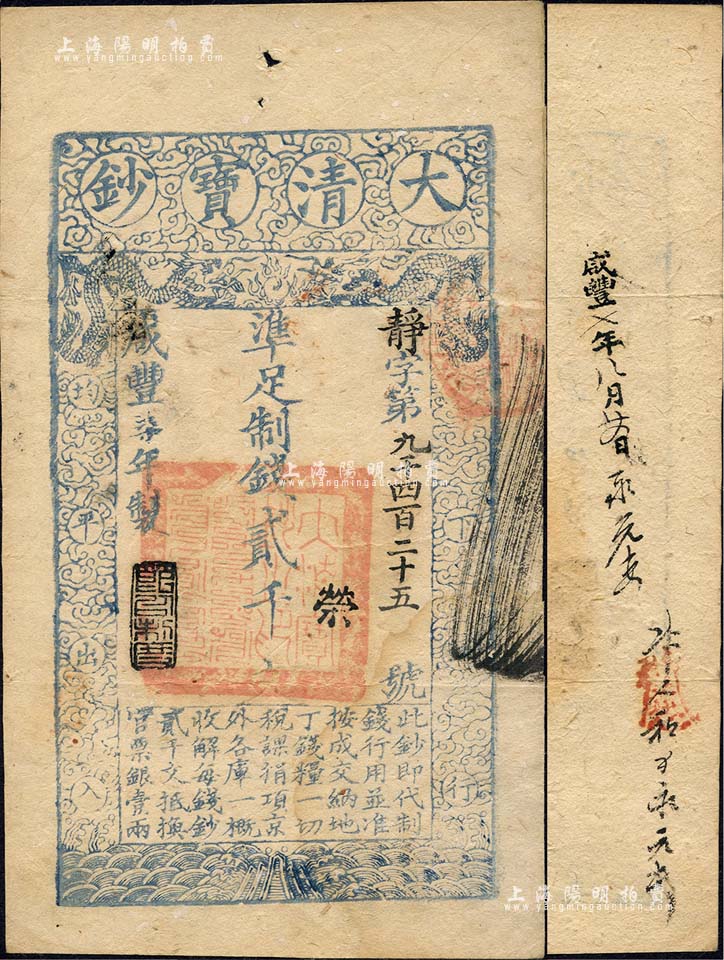 上海陽明拍賣
www.yangmingauction.com
大清寶鈔
靜字第九千四百二十五號
準足制錢貳千文
咸豐柒年製
榮
天下
行
均平出入
此鈔即代制
錢行用並准
按成交納地
丁錢糧一切
稅課捐項京
外各庫一概
收解每錢鈔
貳千文抵換
官票銀壹兩
咸豐
年八月
上海陽明拍賣
www.yangmingauction.com
上海陽明拍賣
www.yangmingauction.com